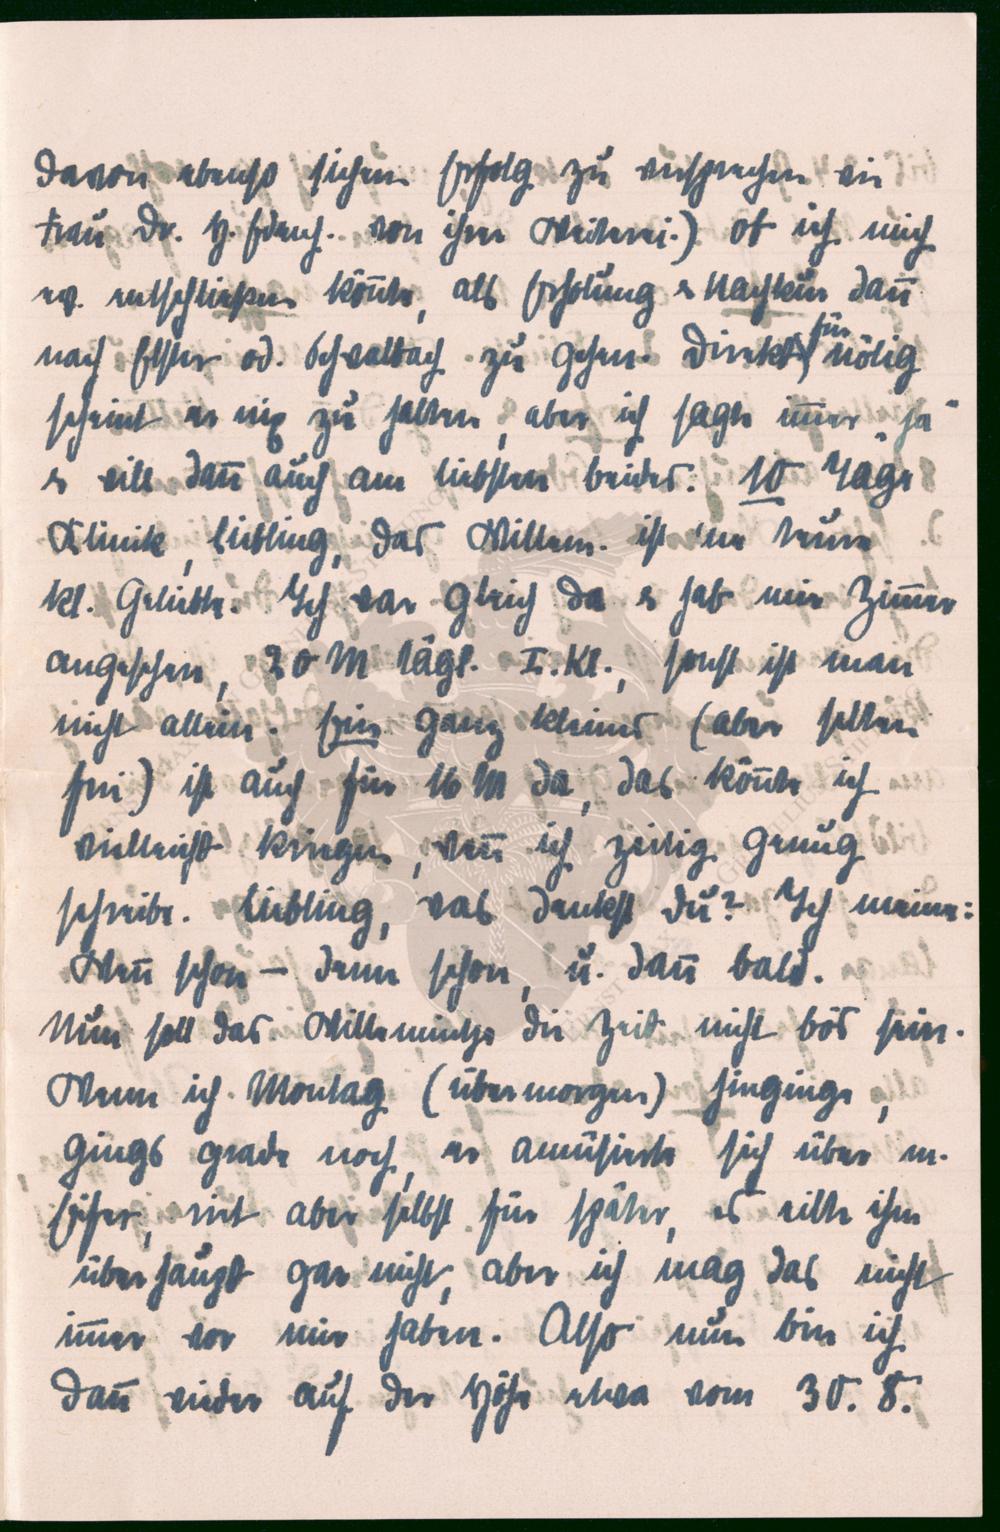 davon ebenso sichern Erfolg zu versprechen wie
Frau Dr. H. von ihrer Meiterei.) ob ich mich
ev. entschließen kön̄te, als Erholung & Nachkur dan̄
nach Elster od. Schwalbach zu gehen. Direkt für nötig
scheint er nix zu halten, aber ich sagte im̄er „ja“
& will dan̄ auch am liebsten beides. 10 Tage
Klinik, Liebling, das Willem. ist 'ne teure
kl. Geliebte. Ich war gleich da & hab mir Zim̄er
angesehen, 20 M tägl. I. Kl., sonst ist man
nicht allein. Ein ganz kleines (aber selten
frei) ist auch für 16 M da, das kön̄te ich
vielleicht kriegen, wen̄ ich zeitig genug
schreibe. Liebling, was denkst Du? Ich meine:
Wen̄ schon – denn schon, u. dan̄ bald.
Nun soll das Willeminchen die Zeit nicht bös sein.
Wenn ich Montag (übermorgen) hinginge,
gings grade noch, er amüsierte sich über m.
Eifer, riet aber selbst für später, es eilte ihm
überhaupt gar nicht, aber ich mag das nicht
im̄er vor mir haben. Also nun bin ich
dan̄ wieder auf der Höhe etwa vom 30. 8.